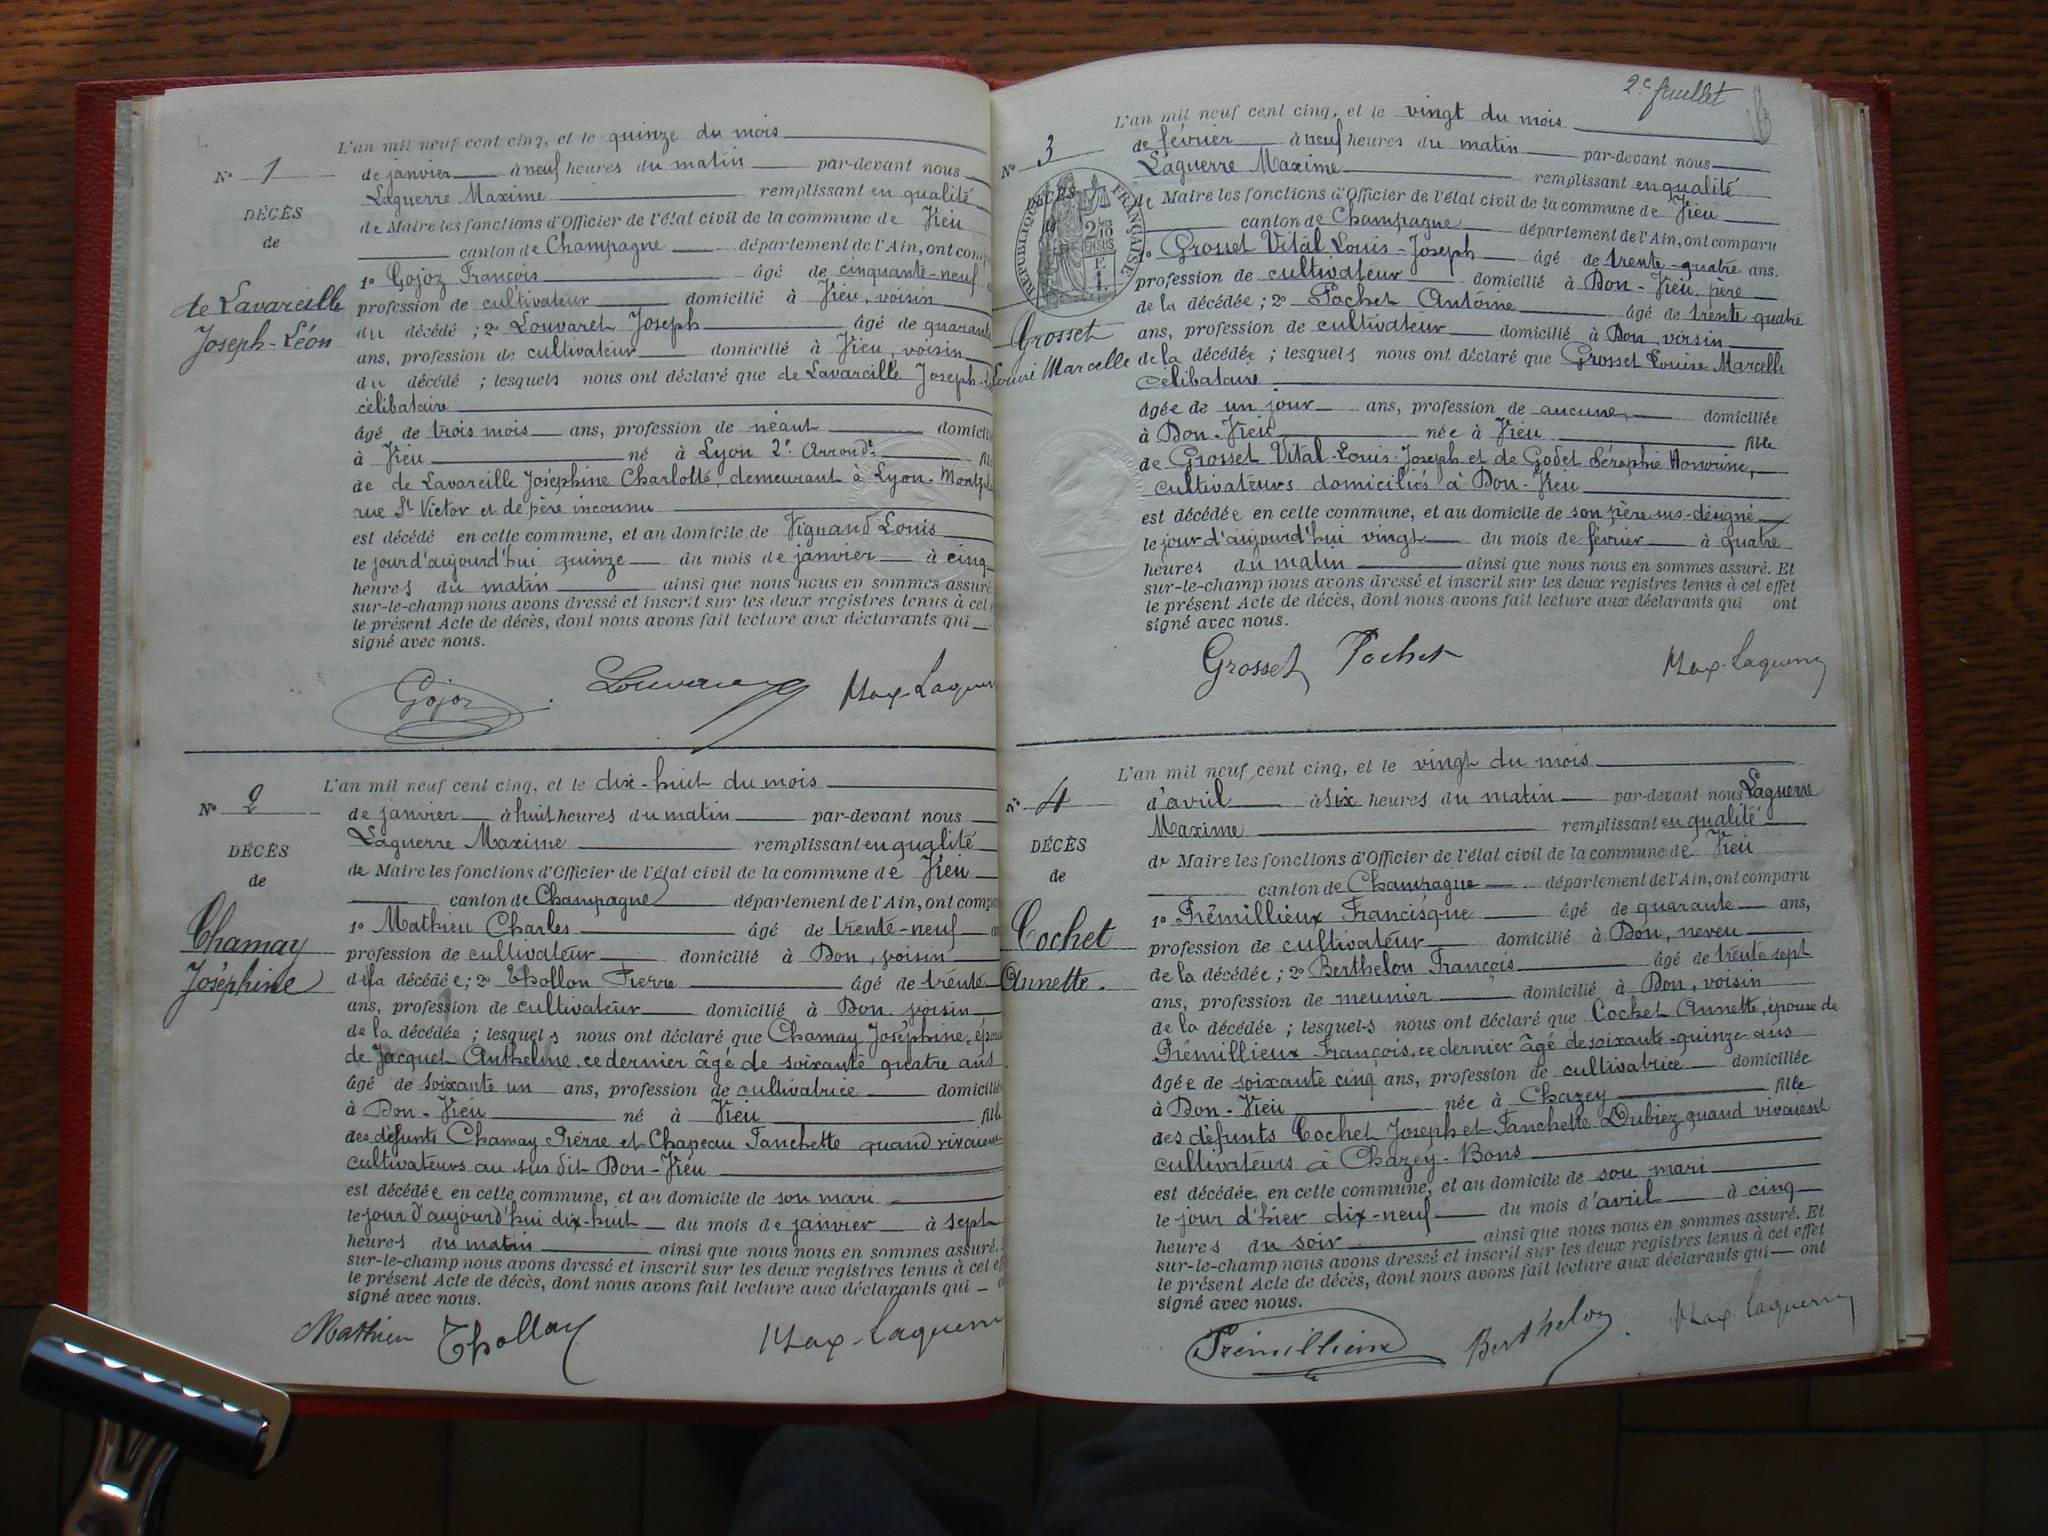 L'an mil neuf cent cinq, et le quinze du mois
N° 1
de janvier à neuf heures du matin par-devant nous
Laguerre Maxime remplissant en qualité
DÉCÈS
de Maire les fonctions d'Officier de l'état civil de la commune de Vieu
de
canton de Champagne département de l'Ain, ont com
1° Gojoz François âgé de cinquante-neuf
de Lavareille
profession de cultivateur domicilié à Vieu, voisin
Joseph-Léon
du décédé ; 2° Louvaret Joseph âgé de quarante
ans, profession de cultivateur domicilié à Vieu, voisin
du décédé ; lesquels nous ont déclaré que de Lavareille Joseph-
célibataire
âgé de trois mois ans, profession de néant domicil
à Vieu né à Lyon 2e Arrondt
de de Lavareille Joséphine Charlotte, demeurant à Lyon-
rue St Victor et de père inconnu
est décédé en cette commune, et au domicile de Vignand Louis
le jour d'aujourd'hui quinze du mois de janvier à cinq
heures du matin ainsi que nous nous en sommes assuré
sur-le-champ nous avons dressé et inscrit sur les deux registres tenus à cet
le présent Acte de décès, dont nous avons fait lecture aux déclarants qui
signé avec nous.
Gojoz Louvaret Max-Laguer
L'an mil neuf cent cinq, et le dix-huit du mois
N° 2
de janvier à huit heures du matin par-devant nous
Laguerre Maxime remplissant en qualité
DÉCÈS
de Maire les fonctions d'Officier de l'état civil de la commune de Vieu
de
canton de Champagne département de l'Ain, ont compa
Chamay
1° Mathieu Charles âgé de trente-neuf
profession de cultivateur domicilié à Don, voisin
Joséphine
de la décédée ; 2° Thollon Pierre âgé de trente
ans, profession de cultivateur domicilié à Don voisin
de la décédée ; lesquels nous ont déclaré que Chamay Joséphine, épou
de Jacquet Anthelme, ce dernier âgé de soixante quatre ans
âgé de soixante un ans, profession de cultivatrice domicilié
à Don-Vieu né à Vieu fille
des défunts Chamay Pierre et Chapeau Fanchette quand vivaient
cultivateurs au sus dit Don-Vieu
est décédée en cette commune, et au domicile de son mari
le jour d'aujourd'hui dix-huit du mois de janvier à sept
heures du matin ainsi que nous nous en sommes assuré.
sur-le-champ nous avons dressé et inscrit sur les deux registres tenus à cet ef
le présent Acte de décès, dont nous avons fait lecture aux déclarants qui
signé avec nous.
Mathieu Thollon Max-Laguerre
2e feuillet
L'an mil neuf cent cinq, et le vingt du mois
N° 3
de février à neuf heures du matin par-devant nous
Laguerre Maxime remplissant en qualité
DÉCÈS
de Maire les fonctions d'Officier de l'état civil de la commune de Vieu
RÉPUBLIQUE FRANÇAISE
2/10 EN SUS
canton de Champagne département de l'Ain, ont comparu
1° Grosset Vital Louis-Joseph âgé de trente-quatre ans.
profession de cultivateur domicilié à Don-Vieu, père
de la décédée ; 2° Pochet Antoine âgé de trente quatre
Grosset
ans, profession de cultivateur domicilié à Don, voisin
Louise Marcelle
de la décédée ; lesquels nous ont déclaré que Grosset Louise Marcelle
célibataire
âgée de un jour ans, profession de aucune, domiciliée
à Don-Vieu née à Vieu fille
de Grosset Vital-Louis-Joseph et de Godet Séraphie Honorine,
cultivateurs domiciliés à Don-Vieu
est décédée en cette commune, et au domicile de son père sus-désigné
le jour d'aujourd'hui vingt du mois de février à quatre
heures du matin ainsi que nous nous en sommes assuré. Et
sur-le-champ nous avons dressé et inscrit sur les deux registres tenus à cet effet
le présent Acte de décès, dont nous avons fait lecture aux déclarants qui ont
signé avec nous.
Grosset Pochet Max-Laguerre
L'an mil neuf cent cinq, et le vingt du mois
N° 4
d'avril à six heures du matin par-devant nous Laguerre
Maxime remplissant en qualité
DÉCÈS
de Maire les fonctions d'Officier de l'état civil de la commune de Vieu
de
canton de Champagne département de l'Ain, ont comparu
1° Prémillieux Francisque âgé de quarante ans,
Cochet
profession de cultivateur domicilié à Don, neveu
Annette.
de la décédée ; 2° Berthelon François âgé de trente sept
ans, profession de meunier domicilié à Don, voisin
de la décédée ; lesquels nous ont déclaré que Cochet Annette, épouse de
Prémillieux François, ce dernier âgé de soixante-quinze ans
âgée de soixante cinq ans, profession de cultivatrice domiciliée
à Don-Vieu née à Chazey fille
des défunts Cochet Joseph et Fanchette Dubiez quand vivaient
cultivateurs à Chazey-Bons
est décédée en cette commune, et au domicile de son mari
le jour d'hier dix-neuf du mois d'avril à cinq
heures du soir ainsi que nous nous en sommes assuré. Et
sur-le-champ nous avons dressé et inscrit sur les deux registres tenus à cet effet
le présent Acte de décès, dont nous avons fait lecture aux déclarants qui ont
signé avec nous.
Prémillieux Berthelon Max-Laguerre